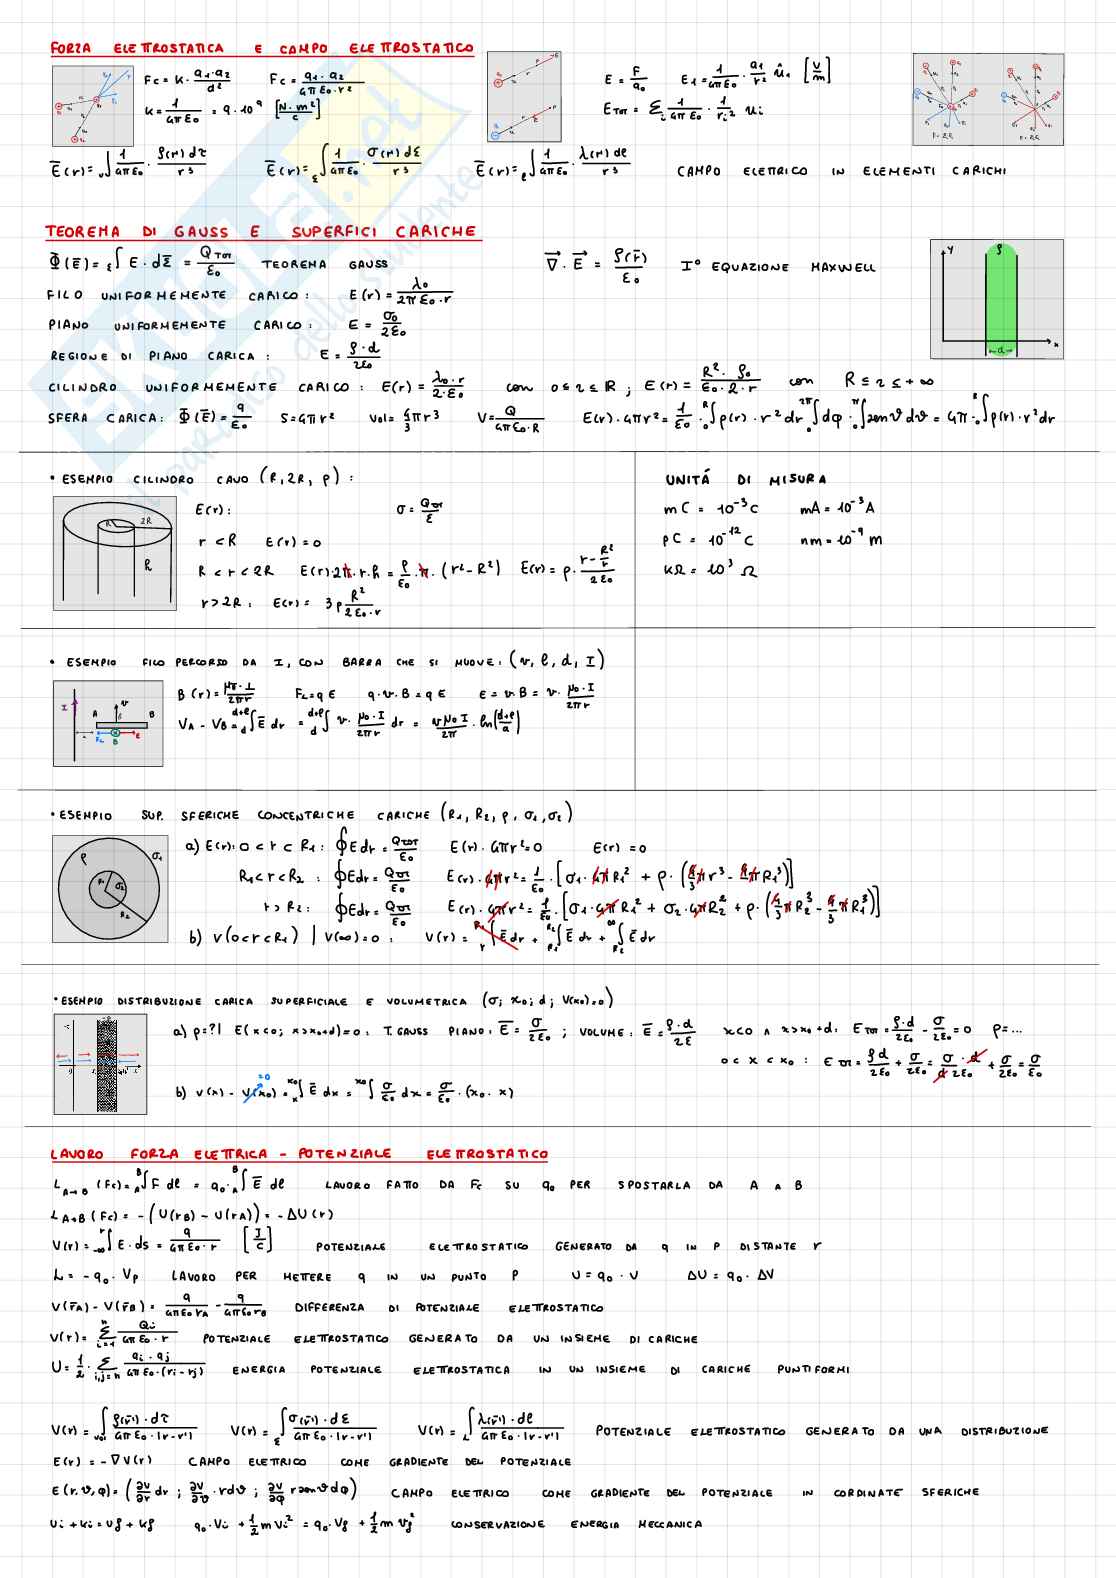 FORZA ELETTROSTATICA E CAMPO ELETTROSTATICO
Fc = K · q1·q2/d² Fc = q1·q2/4πε0·r² E = F/q0 E1 = 1/4πε0 · q1/r² û1 [V/m]
K = 1/4πε0 = 9·10⁹ [N·m²/C] ETOT = Σi 1/4πε0 · 1/ri² ui
E̅(r) = v∫ 1/4πε0 · ρ(r)dτ/r³ E̅(r) = Σ∫ 1/4πε0 · σ(r)dΣ/r³ E̅(r) = ℓ∫ 1/4πε0 · λ(r)dℓ/r³ CAMPO ELETTRICO IN ELEMENTI CARICHI
TEOREMA DI GAUSS E SUPERFICI CARICHE
Φ(E̅) = Σ∫ E·dΣ̅ = QTOT/ε0 TEOREMA GAUSS ∇·E = ρ(r̅)/ε0 I° EQUAZIONE MAXWELL
FILO UNIFORMEMENTE CARICO: E(r) = λ0/2πε0·r
PIANO UNIFORMEMENTE CARICO: E = σ0/2ε0
REGIONE DI PIANO CARICA: E = ρ·d/2ε0
y ρ d x
CILINDRO UNIFORMEMENTE CARICO: E(r) = λ0·r/2·ε0 con 0≤r≤R ; E(r) = R²·ρ0/ε0·2·r con R≤r≤+∞
SFERA CARICA: Φ(E̅) = q/ε0 S=4πr² Vol= 4/3πr³ V= Q/4πε0·R E(r)·4πr² = 1/ε0 · 0∫R ρ(r)·r²dr 0∫2π dφ · 0∫π senϑdϑ = 4π · 0∫R ρ(r)·r²dr
• ESEMPIO CILINDRO CAVO (R,2R,ρ):
R 2R R
E(r): σ = QTOT/Σ
r<R E(r)=0
R<r<2R E(r)·2π·r·h = ρ/ε0·π·(r²-R²) E(r) = ρ· r-R²/r / 2ε0
r>2R: E(r) = 3ρ R²/2ε0·r
UNITÁ DI MISURA
mC = 10⁻³C mA = 10⁻³A
pC = 10⁻¹²C nm = 10⁻⁹m
KΩ = 10³ Ω
• ESEMPIO FILO PERCORSO DA I, CON BARRA CHE SI MUOVE: (v, ℓ, d, I)
I A v B FL B E
B(r) = μ0·I/2πr FL = qE q·v·B = qE E = v·B = v· μ0·I/2πr
VA - VB = d∫d+ℓ E̅ dr = d∫d+ℓ v· μ0·I/2πr dr = vμ0I/2π · ln(d+ℓ/d)
• ESEMPIO SUP. SFERICHE CONCENTRICHE CARICHE (R1, R2, ρ, σ1, σ2)
ρ σ1 R1 σ2 R2
a) E(r): 0<r<R1: ∮Edr = QTOT/ε0 E(r)·4πr²=0 E(r)=0
R1<r<R2: ∮Edr = QTOT/ε0 E(r)·4πr² = 1/ε0·[σ1·4πR1² + ρ·(4/3πr³ - 4/3πR1³)]
r>R2: ∮Edr = QTOT/ε0 E(r)·4πr² = 1/ε0·[σ1·4πR1² + σ2·4πR2² + ρ·(4/3πR2³ - 4/3πR1³)]
b) V(0<r<R1) | V(∞)=0: V(r) = r∫R1 E̅dr + R1∫R2 E̅dr + R2∫∞ E̅dr
• ESEMPIO DISTRIBUZIONE CARICA SUPERFICIALE E VOLUMETRICA (σ; x0; d; V(x0)=0)
a) ρ=?| E(x<0; x>x0+d)=0: T.GAUSS PIANO: E̅ = σ/2ε0 ; VOLUME: E̅ = ρ·d/2ε x<0 ∧ x>x0+d: ETOT = ρ·d/2ε0 - σ/2ε0 = 0 ρ=...
0<x<x0: ETOT = ρd/2ε0 + σ/2ε0 = σ·d/d·2ε0 + σ/2ε0 = σ/ε0
b) V(x) - V(x0) = x∫x0 E̅ dx = x∫x0 σ/ε0 dx = σ/ε0·(x0-x)
=0
LAVORO FORZA ELETTRICA - POTENZIALE ELETTROSTATICO
LA→B (Fc) = A∫B F dℓ = q0·A∫B E̅ dℓ LAVORO FATTO DA Fc SU q0 PER SPOSTARLA DA A a B
LA→B (Fc) = -(U(rB) - U(rA)) = -ΔU(r)
V(r) = -∞∫r E·ds = q/4πε0·r [J/C] POTENZIALE ELETTROSTATICO GENERATO DA q IN P DISTANTE r
L = -q0·VP LAVORO PER METTERE q IN UN PUNTO P U = q0·V ΔU = q0·ΔV
V(r̅A) - V(r̅B) = q/4πε0rA - q/4πε0rB DIFFERENZA DI POTENZIALE ELETTROSTATICO
V(r) = Σi=1n Qi/4πε0·r POTENZIALE ELETTROSTATICO GENERATO DA UN INSIEME DI CARICHE
U = 1/2·Σi,j=n qi·qj/4πε0·(ri-rj) ENERGIA POTENZIALE ELETTROSTATICA IN UN INSIEME DI CARICHE PUNTIFORMI
V(r) = vol∫ ρ(r̅')·dτ/4πε0·|r-r'| V(r) = Σ∫ σ(r̅')·dΣ/4πε0·|r-r'| V(r) = L∫ λ(r̅')·dℓ/4πε0·|r-r'| POTENZIALE ELETTROSTATICO GENERATO DA UNA DISTRIBUZIONE
E(r) = -∇V(r) CAMPO ELETTRICO COME GRADIENTE DEL POTENZIALE
E(r,ϑ,φ) = (∂V/∂r dr ; ∂V/∂ϑ·rdϑ ; ∂V/∂φ rsenϑdφ) CAMPO ELETTRICO COME GRADIENTE DEL POTENZIALE IN CORDINATE SFERICHE
Ui + Ki = Uf + Kf q0·Vi + 1/2mVi² = q0·Vf + 1/2mVf² CONSERVAZIONE ENERGIA MECCANICA